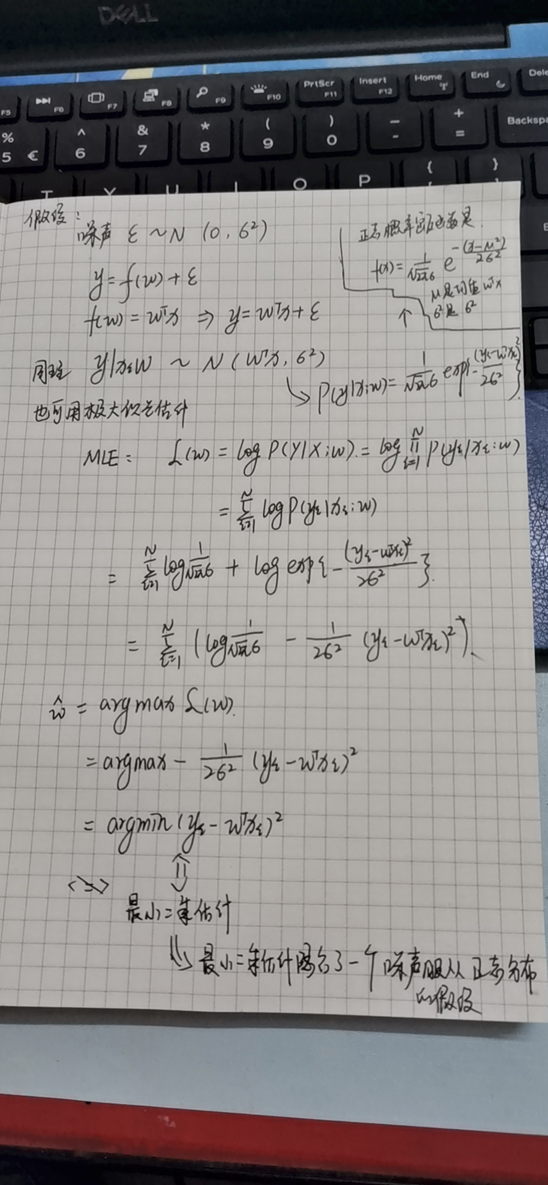 DELL
F5 F6 F7 F8 F9 F10 PrtScr F11 Insert F12 Home End Dele
% 5 € ^ 6 & 7 * 8 ( 9 ) 0 - + = Backspa
T Y U I O P { }
假设:
噪声 ε ~ N (0, σ²)
y = f(w) + ε
f(w) = wᵀx ⇒ y = wᵀx + ε
正态概率密度函数是
f(x) = 1/(√2π σ) e^(-(x-μ²)/2σ²)
μ是均值 wᵀx
σ²是 σ²
y|xᵢw ~ N (wᵀx, σ²)
↳ P(y|x;w) = 1/(√2π σ) exp{-(yᵢ-wᵀxᵢ)²/2σ²}
也可用极大似然估计
MLE: L(w) = log P(Y|X;w) = log ∏ᵢ₌₁ᴺ P(yᵢ|xᵢ;w)
= ∑ᵢ₌₁ᴺ log P(yᵢ|xᵢ;w)
= ∑ᵢ₌₁ᴺ log 1/(√2π σ) + log exp{-(yᵢ-wᵀxᵢ)²/2σ²}
= ∑ᵢ₌₁ᴺ (log 1/(√2π σ) - 1/2σ² (yᵢ-wᵀxᵢ)²)
ŵ = argmax L(w)
= argmax - 1/2σ² (yᵢ-wᵀxᵢ)²
= argmin (yᵢ-wᵀxᵢ)²
<=>
最小二乘估计
最小二乘估计隐含了一个噪声服从正态分布
的假设